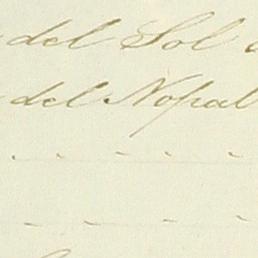 del Sol
del Nopal